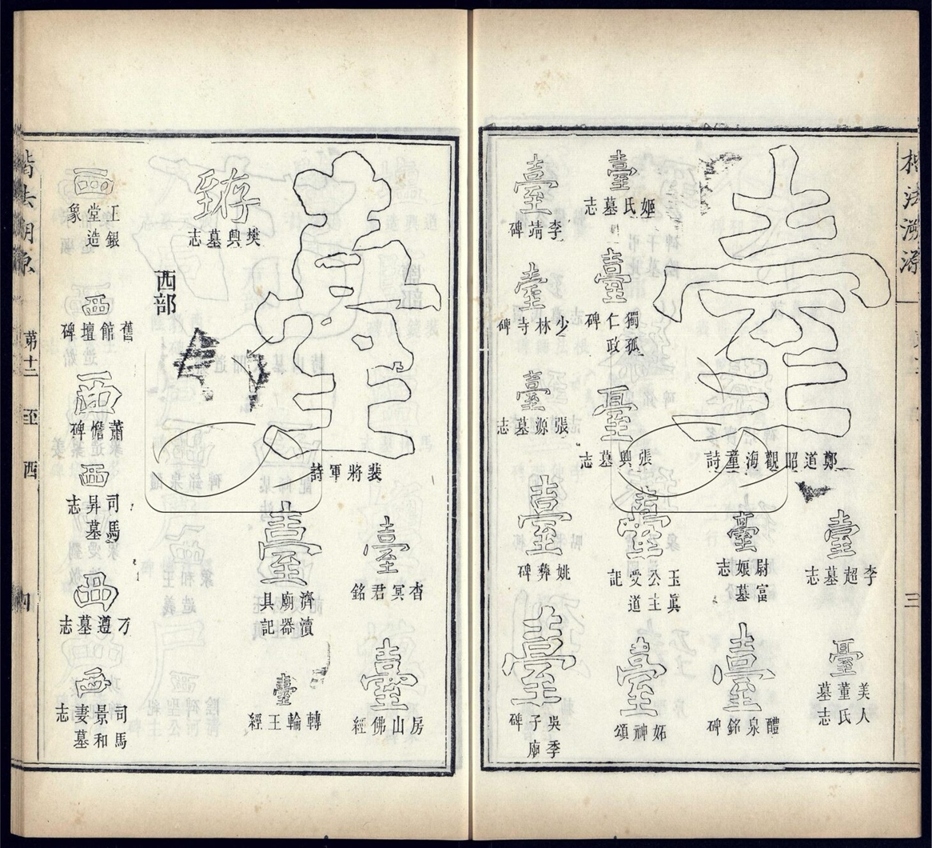 楷法溯源
三
臺
鄭道昭觀海童詩
臺
李超墓志
臺
美人董氏墓志
臺
尉富娘墓志
臺
醴泉銘碑
臺
姬氏墓志
臺
獨孤仁政碑
臺
張興墓志
臺
玉眞公主受道記
臺
妬神頌
臺
李靖碑
臺
少林寺碑
臺
張源墓志
臺
姚彝碑
臺
吳季子廟碑
臺
裴將軍詩
臺
杳冥君銘
臺
房山佛經
樊興墓志
臺
濟瀆廟器具記
臺
轉輪王經
西部
西
王銀堂造象
西
舊館壇碑
西
蕭憺碑
西
司馬昇墓志
西
刁遵墓志
西
司馬景和妻墓志
楷法溯源
第十二
至
西
四